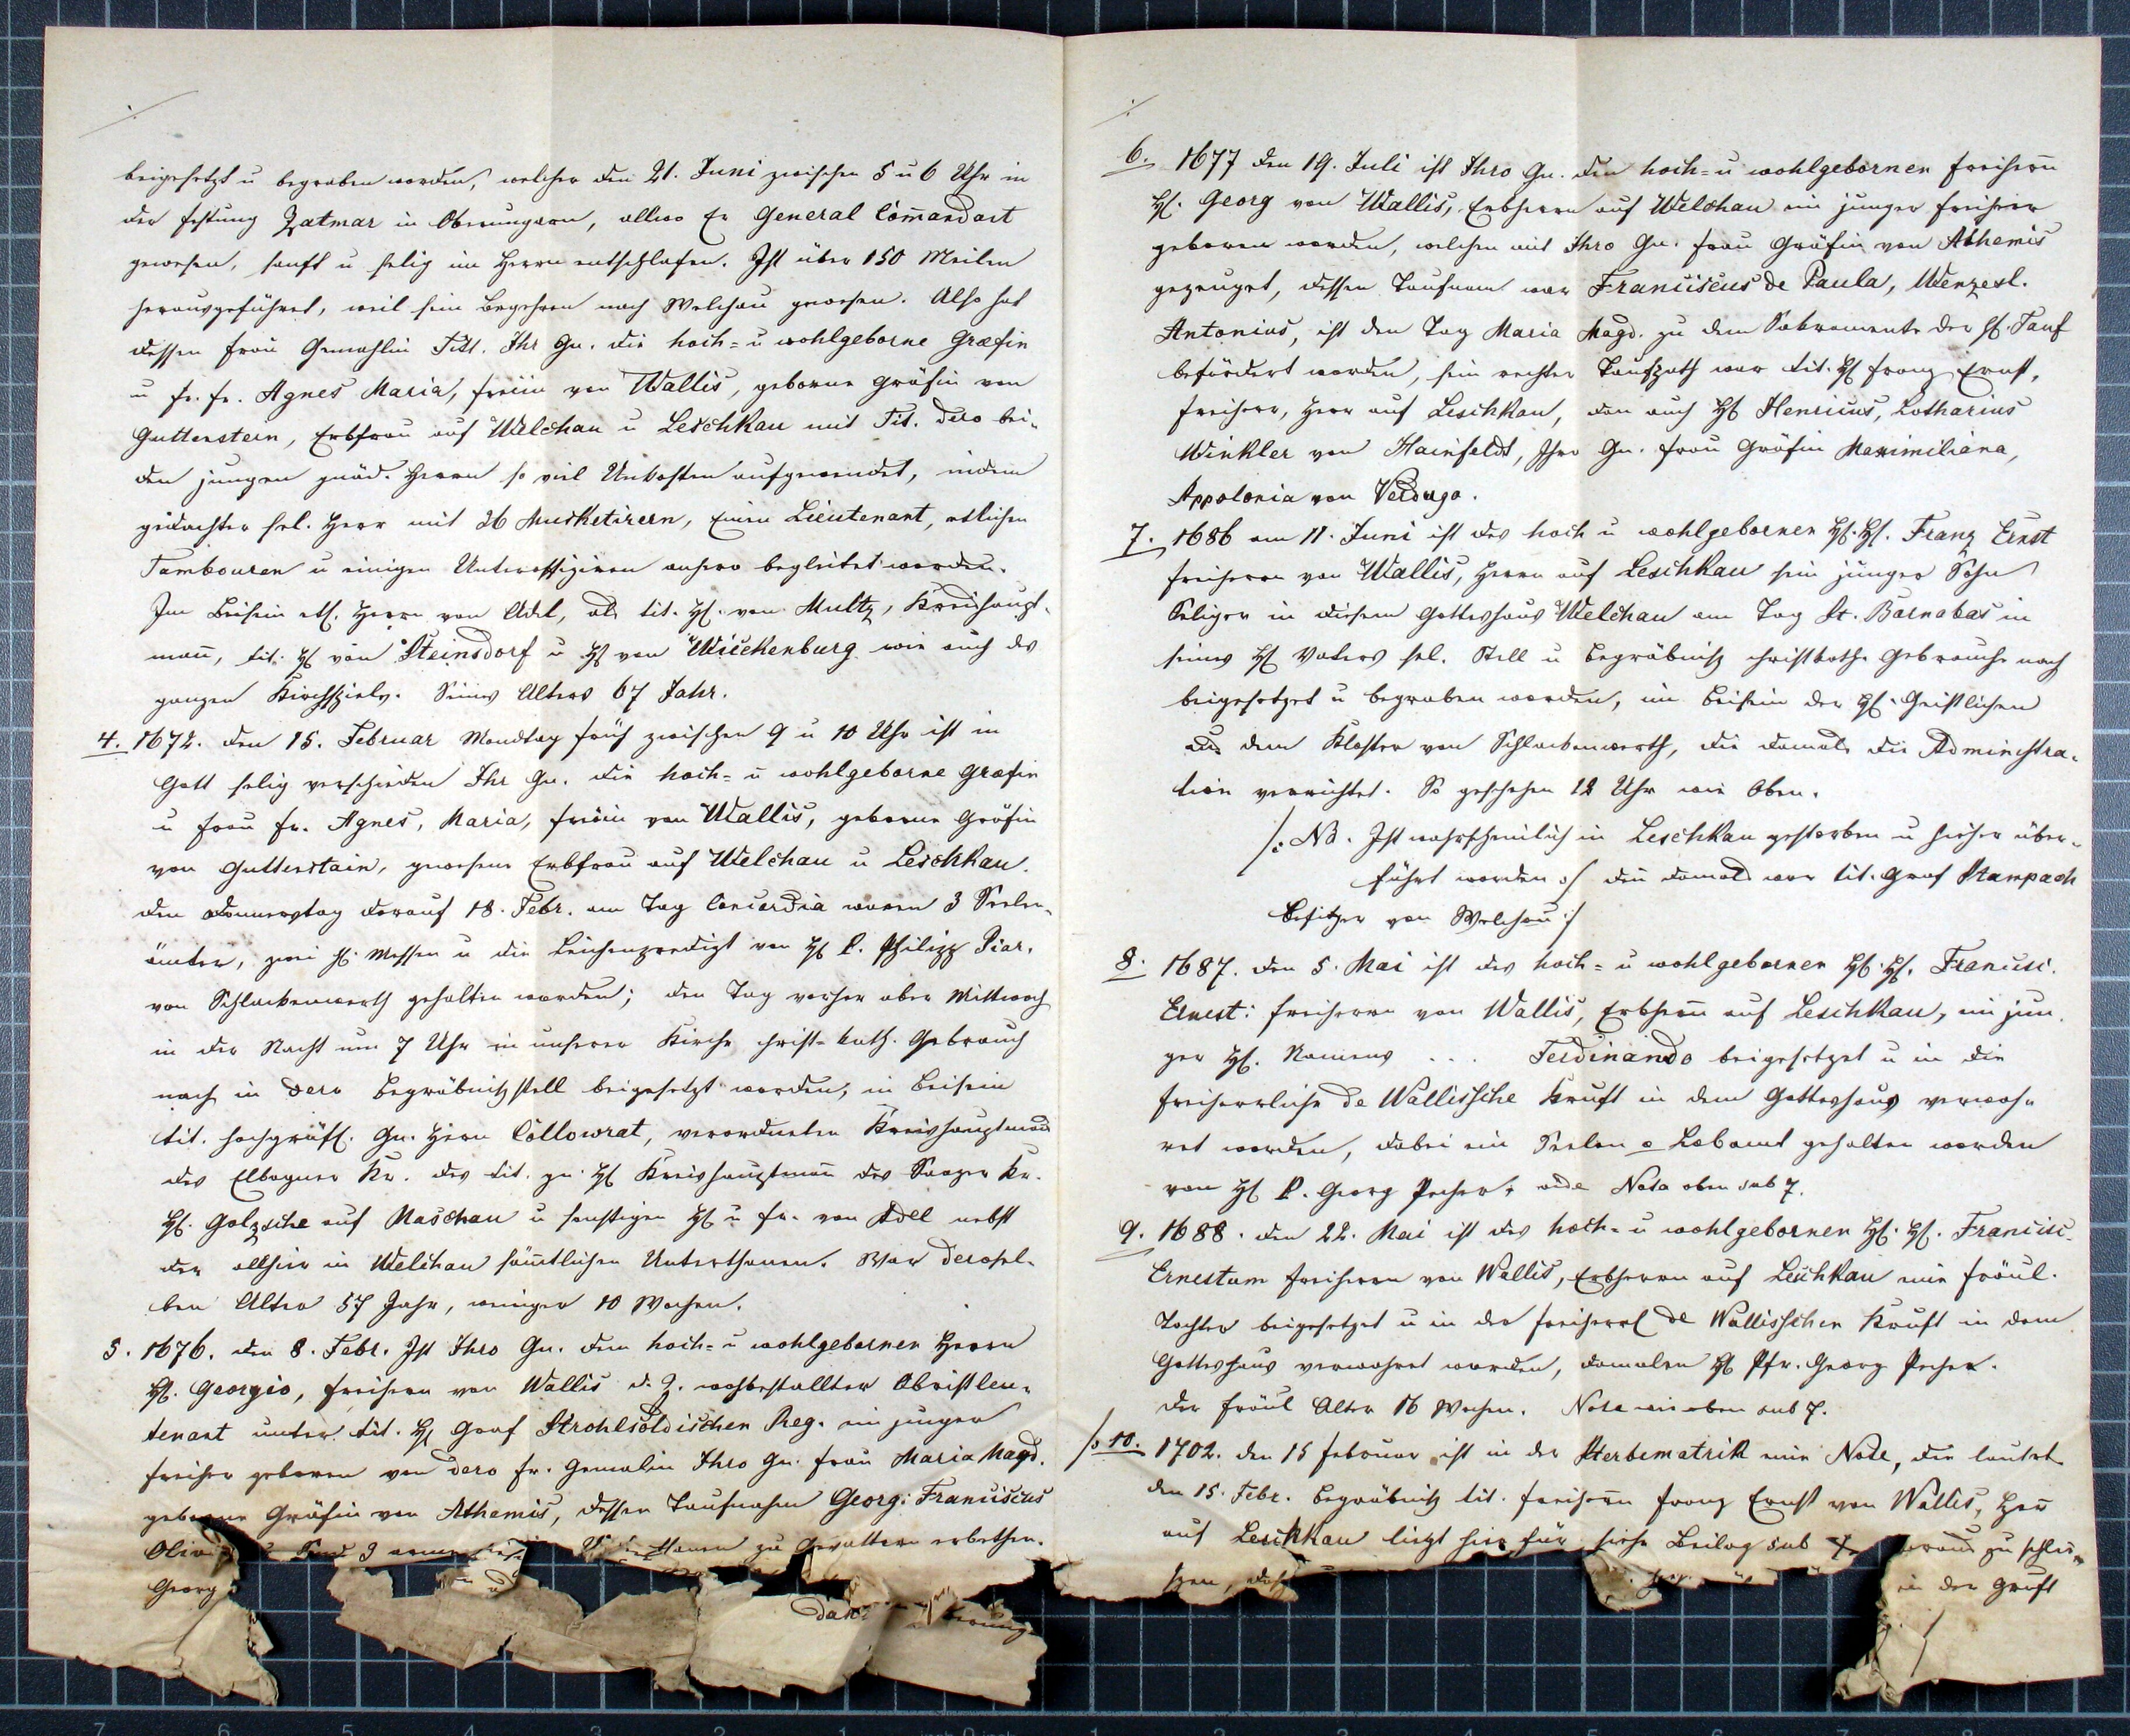 beigesetzt u begraben worden, welcher den 21. Juni zwischen 5 u 6 Uhr in
der Festung Zatmar in Oberungarn, allwo Er General Com̄andant
gewesen, sanft u selig im Herrn entschlafen. Ist über 150 Meilen
herausgeführt, weil sein Begehren nach Welchau gewesen. Also hat
dessen Frau Gemahlin Titl. Ihr Gn. die hoch- u wohlgeborne Græfin
u Fr. Fr. Agnes Maria, Freiin von Wallis, geborne Gräfin von
Guttenstein, Erbfrau auf Welchau u Leschkau mit Tit. dero bei-
den jungen gnäd. Herrn so viel Unkosten aufgewendet, indem
gedachter sel. Herr mit 26 Musketirern, Einen Lieutenant, etlichen
Tambouren u einigen Unteroffiziren anhero begleitet worden.
Im Beisein etl. Herrn von Adel, als tit. H. von Multz, Kreishaupt-
man̄, tit. H von Steinsdorf u H von Wieckenburg wie auch des
ganzen Kirchspiels. Seines Alters 67 Jahr.
4. 1672. den 15. Februar Mondtag früh zwischen 9 u 10 Uhr ist in
Gott selig verschieden Ihr Gn. die hoch- u wohlgeborne Græfin
u Frau Fr. Agnes, Maria, Freiin von Wallis, geborne Gräfin
von Guttenstain, gewesene Erbfrau auf Welchau u Leschkau.
den Donnerstag darauf 18. Febr. am Tag Concordia waren 3 Seelen-
ämter, zwei hl. Messen u die Leichenpredigt von H P. Philipp Piar.
von Schlackenwerth gehalten worden; den Tag vorher aber Mittwoch
in der Nacht um 7 Uhr in unserer Kirche christ-kath. Gebrauch
nach in dero Begräbnitzstell beigesetzt worden, in Beisein
tit. hochgräfl. Gn. Herrn Collowrat, verordneten Kreishauptman̄
des Elbogner Kr. des tit. gn. H Kreishauptman̄ des Saazer Kr.
H. Golzsche auf Maschau u sonstigen H u Fr. von Adel nebst
den allhier in Welchau säm̄tlichen Unterthanen. War derosel-
ben Alter 57 Jahr, weniger 10 Wochen.
5. 1676. den 8. Febr. Ist Ihro Gn. dem hoch- u wohlgebornen Herrn
H. Georgio, Freiherrn von Wallis d. Z. wohbestallter Obristleu-
tenant unter tit. H Graf Strohlsoldischen Reg. ein junger
Freiherr geboren von dero Fr. Gemalin Ihro Gn. Frau Maria Magd.
geborne Gräfin von Athemis, dessen Taufnahmen Georg: Franciscus
zu Gevattern erbethen.
Georg
6. 1677 den 19. Juli ist Ihro Gn. den hoch- u wohlgebornen Freiherrn
H. Georg von Wallis, Erbherrn auf Welchau ein junger Freiherr
geboren worden, welchen mit Ihro Gn. Frau Gräfin von Athemis
gezeuget, dessen Taufnam war Franciscus de Paula, Wenzesl.
Antonius, ist den Tag Maria Magd. zu dem Sakramente der hl. Tauf
befördert worden, sein rechter Taufpath war tit. H Franz Ernst,
Freiherr, Herr auf Leschkau, dan auch H Henricus, Lotharius
Winkler von Hainfeldt, Ihro Gn. Frau Gräfin Maximiliana,
Appolonia von Verdugo.
7. 1686 am 11. Juni ist des hoch u wohlgebornen H. H. Franz Ernst
Freiherrn von Wallis, Herrn auf Leschkau sein junger Sohn
Seliger in diesem Gotteshaus Welchau am Tag St. Barnabas in
seines H Vaters sel. Stell u Begräbnitz christkath. Gebrauche nach
beigesetzet u begraben worden, im Beisein der H. Geistlichen
aus dem Kloster von Schlackenwerth, die damals die Administra-
tion verrichtet. So geschehen 12 Uhr wie Oben.
/: NB. Ist wahrscheinlich in Leschkau gestorben u hieher über-
führt worden den damals war tit. Graf Stampach
Besitzer von Welchau :/
8. 1687. den 5. Mai ist des hoch- u wohlgebornen H. H. Francisc.
Ernest: Freiherrn von Wallis, Erbherrn auf Leschkau, ein jun-
ger H. Namens . . . Ferdinando beigesetzet u in die
freiherrliche de Wallissche Kruft in dem Gotteshaus verwah-
ret worden, dabei ein Seelen- o Lobamt gehalten worden
von H P. Georg Pecher, vide Nota oben sub 7.
9. 1688. den 22. Mai ist des hoch- u wohlgebornen H. H. Francisc-
Ernestum Freiherrn von Wallis, Erbherrn auf Leschkau eine Fräul.
Tochter beigesetzet u in der freiherrl de Wallisschen Kruft in dem
Gotteshaus verwahret worden, damalen H Pfr. Georg Pecher.
der Fräul Alter 16 Wochen. Nota wie oben sub 7.
10. 1702. den 15 Februar ist in der Sterbematrik eine Note, die lautet
den 15. Febr. Begräbnitz tit. Freiherrn Franz Ernst von Wallis, Herr
auf Leschkau liegt hier, für siehe Beilag sub zu schlie-
ßen, daß in der Gruft